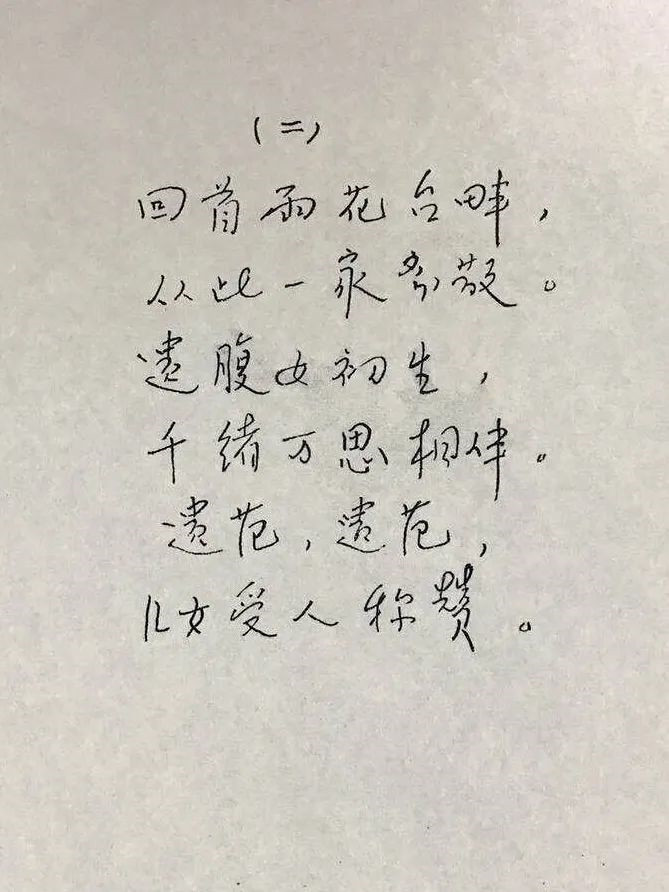 （二）
回首雨花台畔，
从此一家分散。
遗腹女初生，
千绪万思相伴。
遗范，遗范，
儿女受人称赞。